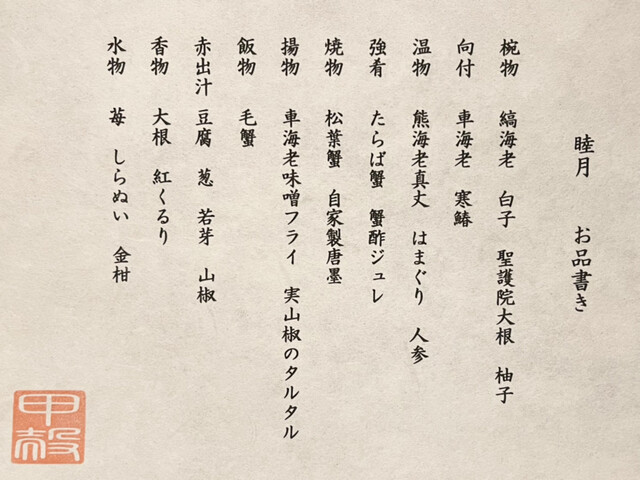 睦月　お品書き
椀物　縞海老　白子　聖護院大根　柚子
向付　車海老　寒鰆
温物　熊海老真丈　はまぐり　人参
強肴　たらば蟹　蟹酢ジュレ
焼物　松葉蟹　自家製唐墨
揚物　車海老味噌フライ　実山椒のタルタル
飯物　毛蟹
赤出汁　豆腐　葱　若芽　山椒
香物　大根　紅くるり
水物　苺　しらぬい　金柑
甲殻